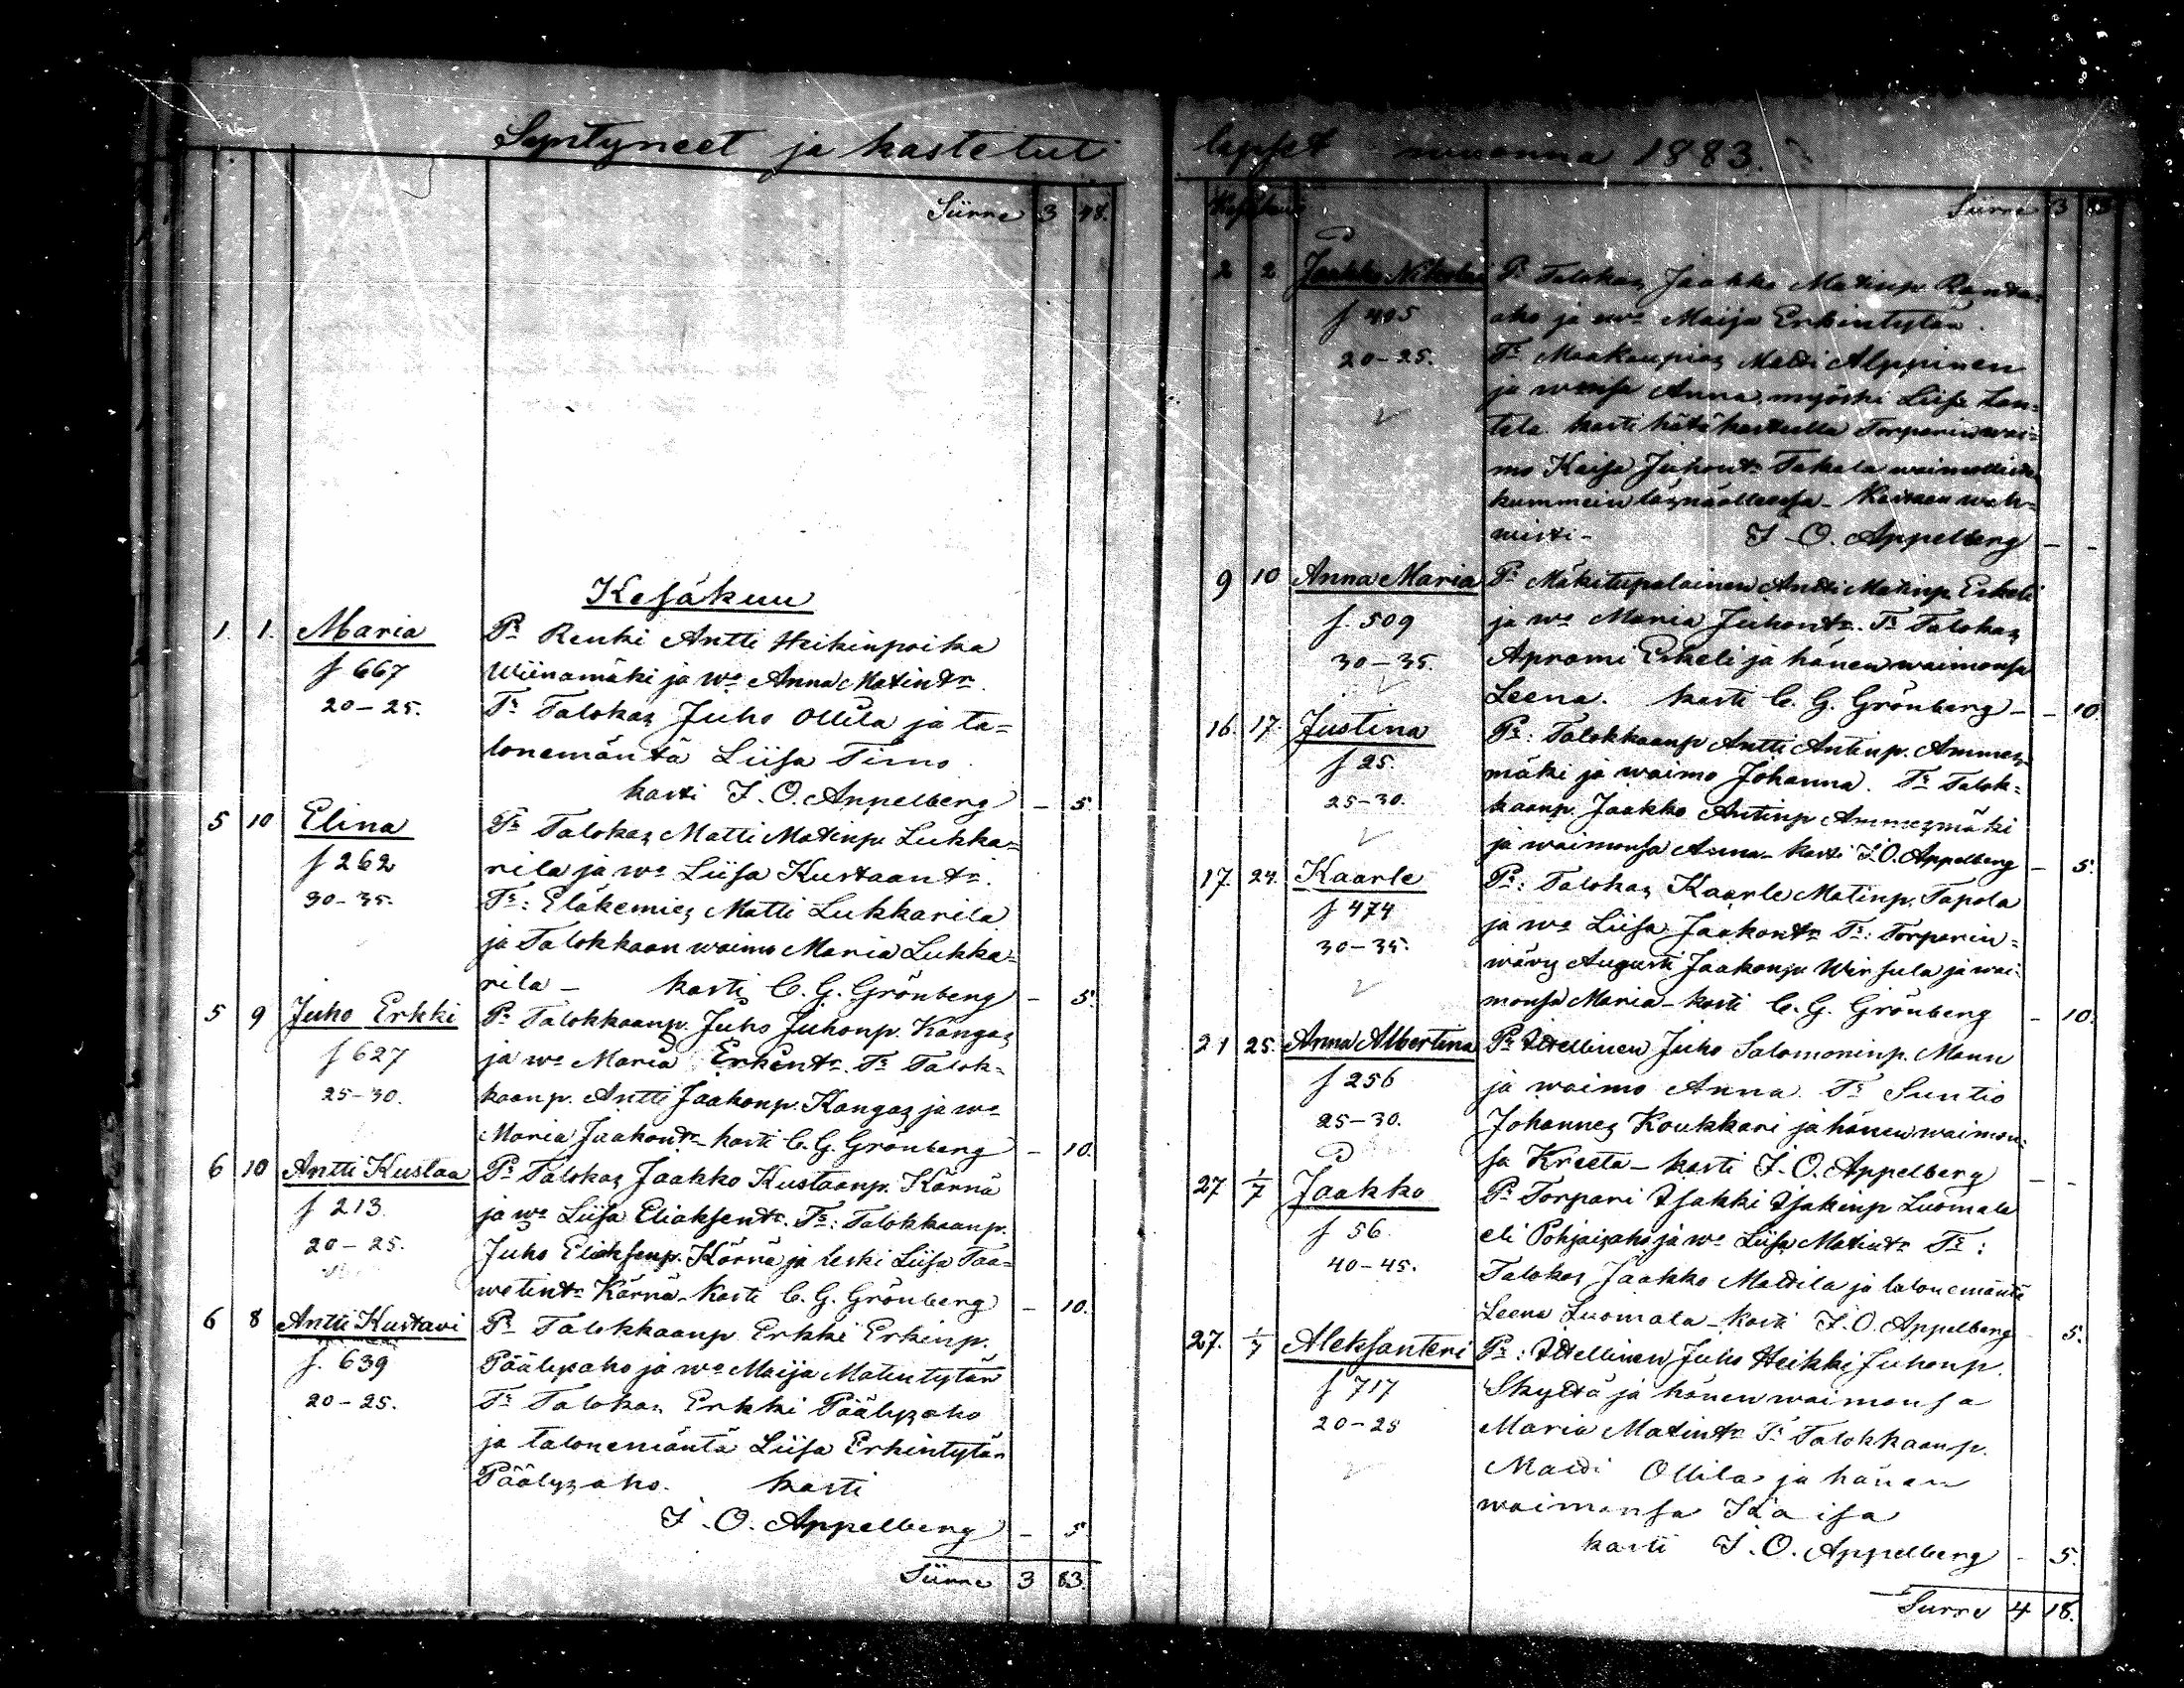 Syntyneet ja kastetut
Siirre 3 48.
Kesäkuu
1. 1. Maria Pr Renki Antti Heikinpoika
f 667 Wiinamäki ja wo Anna Matintr.
20-25. Tr Talokas Juho Ollila ja ta=
lonemäntä Liisa Timo
kasti J. O. Appelberg - 5.
5 10 Elina Pr Talokas Matti Matinp. Lukka=
f 262 rila ja wo Liisa Kustaantr.
30-35. Tr: Eläkemies Matti Lukkarila
ja Talokkaan waimo Maria Lukka=
rila - kasti C. G. Grönberg - 5.
5 9 Juho Erkki Pr Talokkaanp. Juho Juhonp. Kangas
f 627 ja wo Maria Erkintr. Tr Talok=
25-30. kaanp. Antti Jaakonp. Kangas ja wo
Maria Jaakontr - kasti C. G. Grönberg - 10.
6 10 Antti Kustaa Pr Talokas Jaakko Kustaanp. Kärnä
f 213. ja wo Liisa Eliaksentr. Tr: Talokkaanp.
20-25. Juho Eliaksenp. Kärnä ja leski Liisa Taa=
wetintr Kärnä - kasti C. G. Grönberg - 10.
6 8 Antti Kustavi Pr Talokkaanp Erkki Erkinp.
f. 639 Päälysaho ja wo Maija Matintytär
20-25. Tr Talokas Erkki Päälysaho
ja talonemäntä Liisa Erkintytär
Päälysaho. kasti
J. O. Appelberg - 5
Siirre 3 83.
lapset wuonna 1883.
Kesäkuu Siirre 3 83
2 2 Jaakko Nikolai Pr Talokas Jaakko Matinp. Ranta=
f 405 aho ja wo Maija Erkintytär.
20-25. Tr Maakauppias Matti Alppinen
ja waimo Anna, myöski Liisa Lan=
tela. kasti hätäkasteella Torparin wai=
mo Kaisa Juhontr Takala
kummein läsnäollessa - Kasteen wah=
wisti - J. O. Appelberg - -
9 10 Anna Maria Pr Mäkitupalainen Antti Matinp. Erkeli
f. 509 ja wo Maria Juhontr. Tr Talokas
30-35. Aprami Erkeli ja hänen waimonsa
Leena. kasti C. G. Grönberg - - 10.
16. 17. Justina Pr: Talokkaanp Antti Antinp. Ammes=
f 25. mäki ja waimo Johanna. Tr Talok=
25-30. kaanp. Jaakko Antinp Ammesmäki
ja waimonsa Anna - kasti J. O. Appelberg - 5.
17. 24. Kaarle Pr: Talokas Kaarle Matinp. Tapola
f 474 ja wo Liisa Jaakontr Tr: Torparin=
30-35. wäwy Augusti Jaakonp. Wirsula ja wai=
monsa Maria - kasti C. G. Grönberg - 10.
21 25. Anna Albertina Pr Itellinen Juho Salomoninp. Mannu
f 256 ja waimo Anna. Tr Suntio
25-30. Johannes Koukkari ja hänen waimon=
sa Kreeta - kasti J. O. Appelberg - -
27 1/7 Jaakko Pr Torpari Isakki Isakinp Luomala
f 56. eli Pohjaisaho ja wo Liisa Matintr Tr:
40-45. Talokas Jaakko Mattila ja talonemäntä
Leena Luomala - kasti J. O. Appelberg - 5.
27. 1/7 Aleksanteri Pr: Itellinen Juho Heikki Juhonp.
f 717 Skyttä ja hänen waimonsa
20-25 Maria Matintr Tr Talokkaanp.
Matti Ollila ja hänen
waimonsa Kaisa
kasti J. O. Appelberg - 5.
Siirre 4 18.